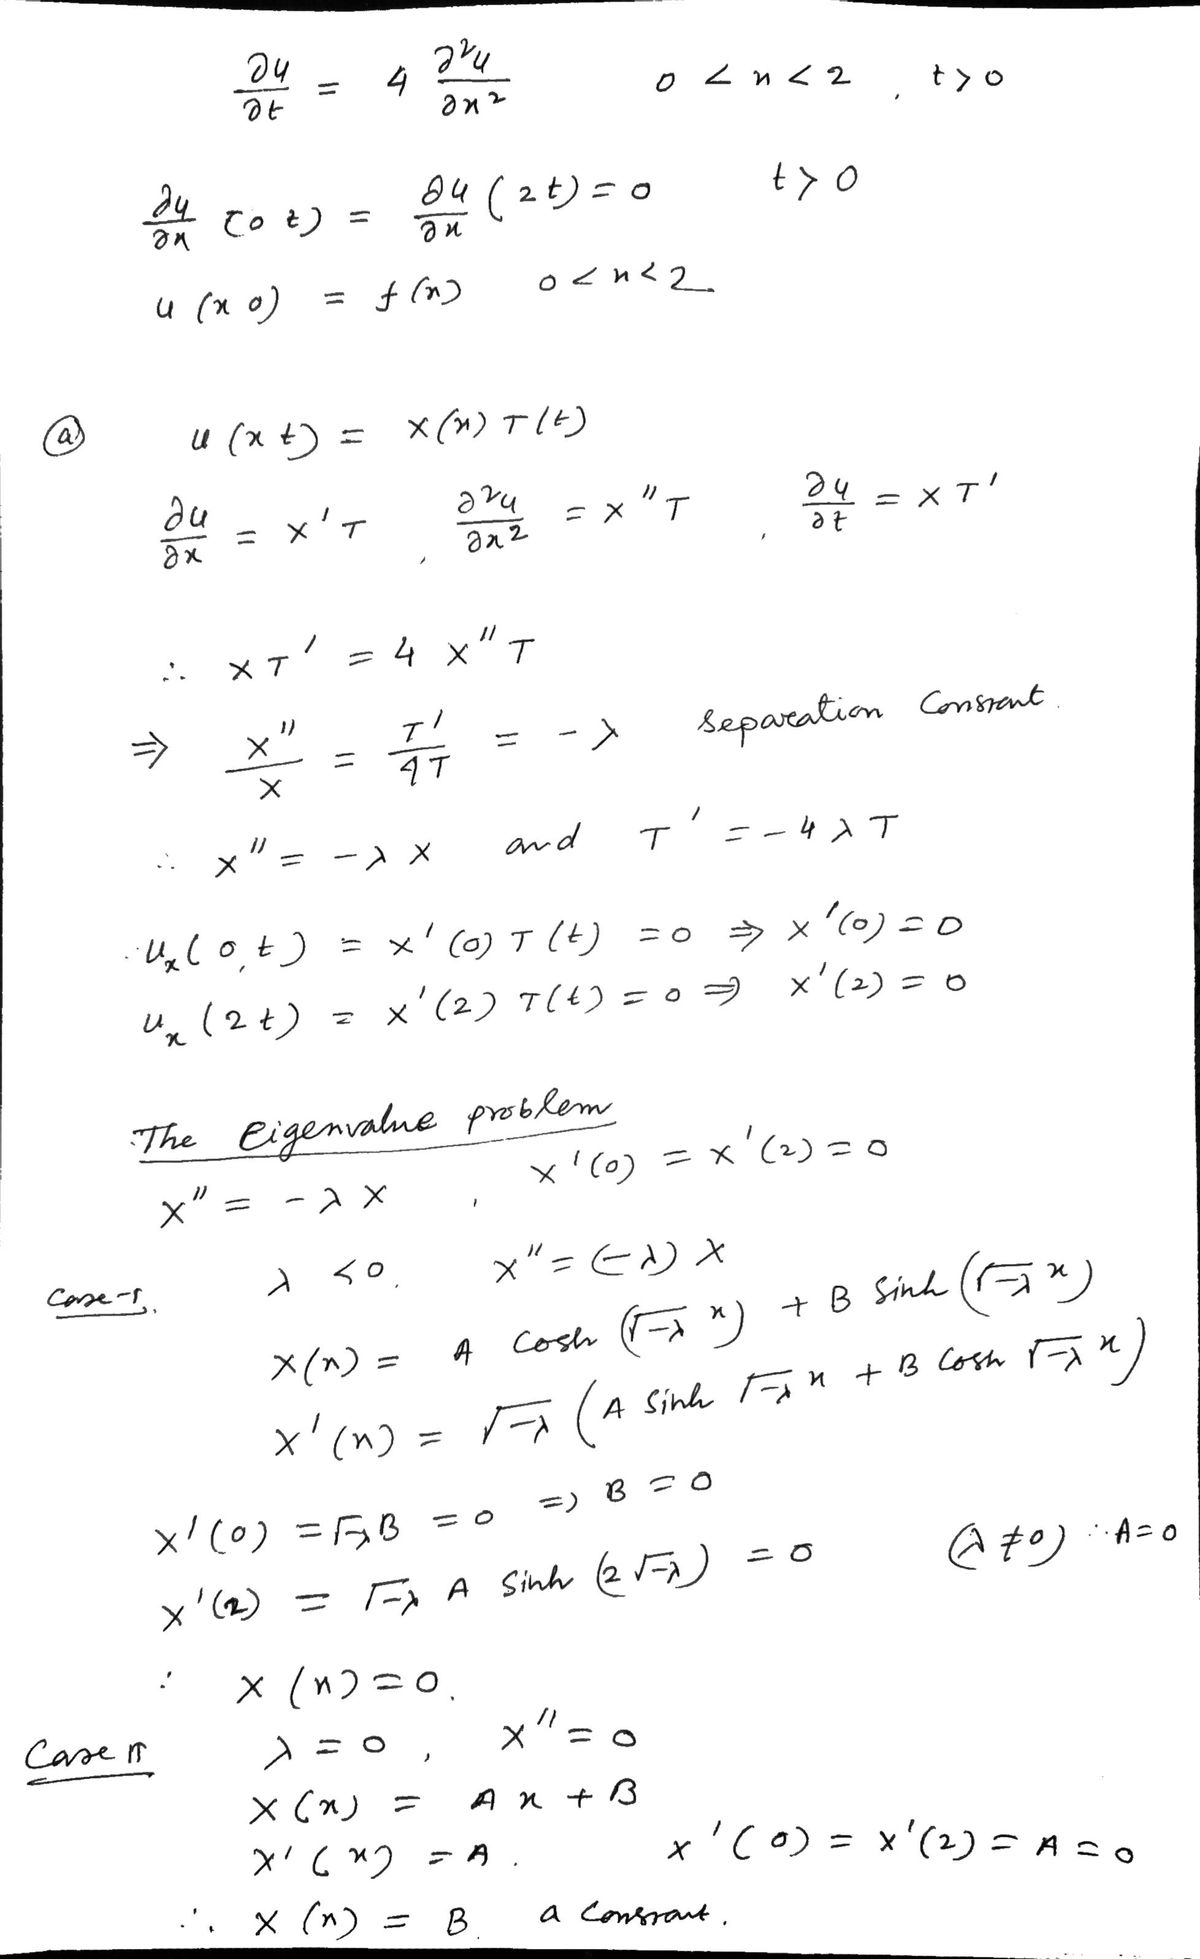 ∂u/∂t = 4 ∂²u/∂x² 0 < x < 2 , t > 0
∂u/∂x (0 t) = ∂u/∂x (2 t) = 0 t > 0
u (x 0) = f(x) 0 < x < 2
(a) u (x t) = X(x) T(t)
∂u/∂x = X'T , ∂²u/∂x² = X''T , ∂u/∂t = X T'
∴ X T' = 4 X''T
⇒ X''/X = T'/4T = -λ separation Constant.
∴ X'' = -λ X and T' = -4 λ T
u_x(0,t) = X'(0) T(t) = 0 ⇒ X'(0) = 0
u_x(2 t) = X'(2) T(t) = 0 ⇒ X'(2) = 0
The Eigenvalue problem
X'' = -λ X , X'(0) = X'(2) = 0
Case-I. λ < 0. X'' = (-λ) X
X(x) = A Cosh (√-λ x) + B Sinh (√-λ x)
X'(x) = √-λ (A Sinh √-λ x + B Cosh √-λ x)
X'(0) = √-λ B = 0 ⇒ B = 0
X'(2) = √-λ A Sinh (2 √-λ) = 0 (λ ≠ 0) ∴ A = 0
∴ X (x) = 0.
Case II λ = 0 , X'' = 0
X(x) = A x + B
X'(x) = A . X'(0) = X'(2) = A = 0
∴ X (x) = B a Constant.